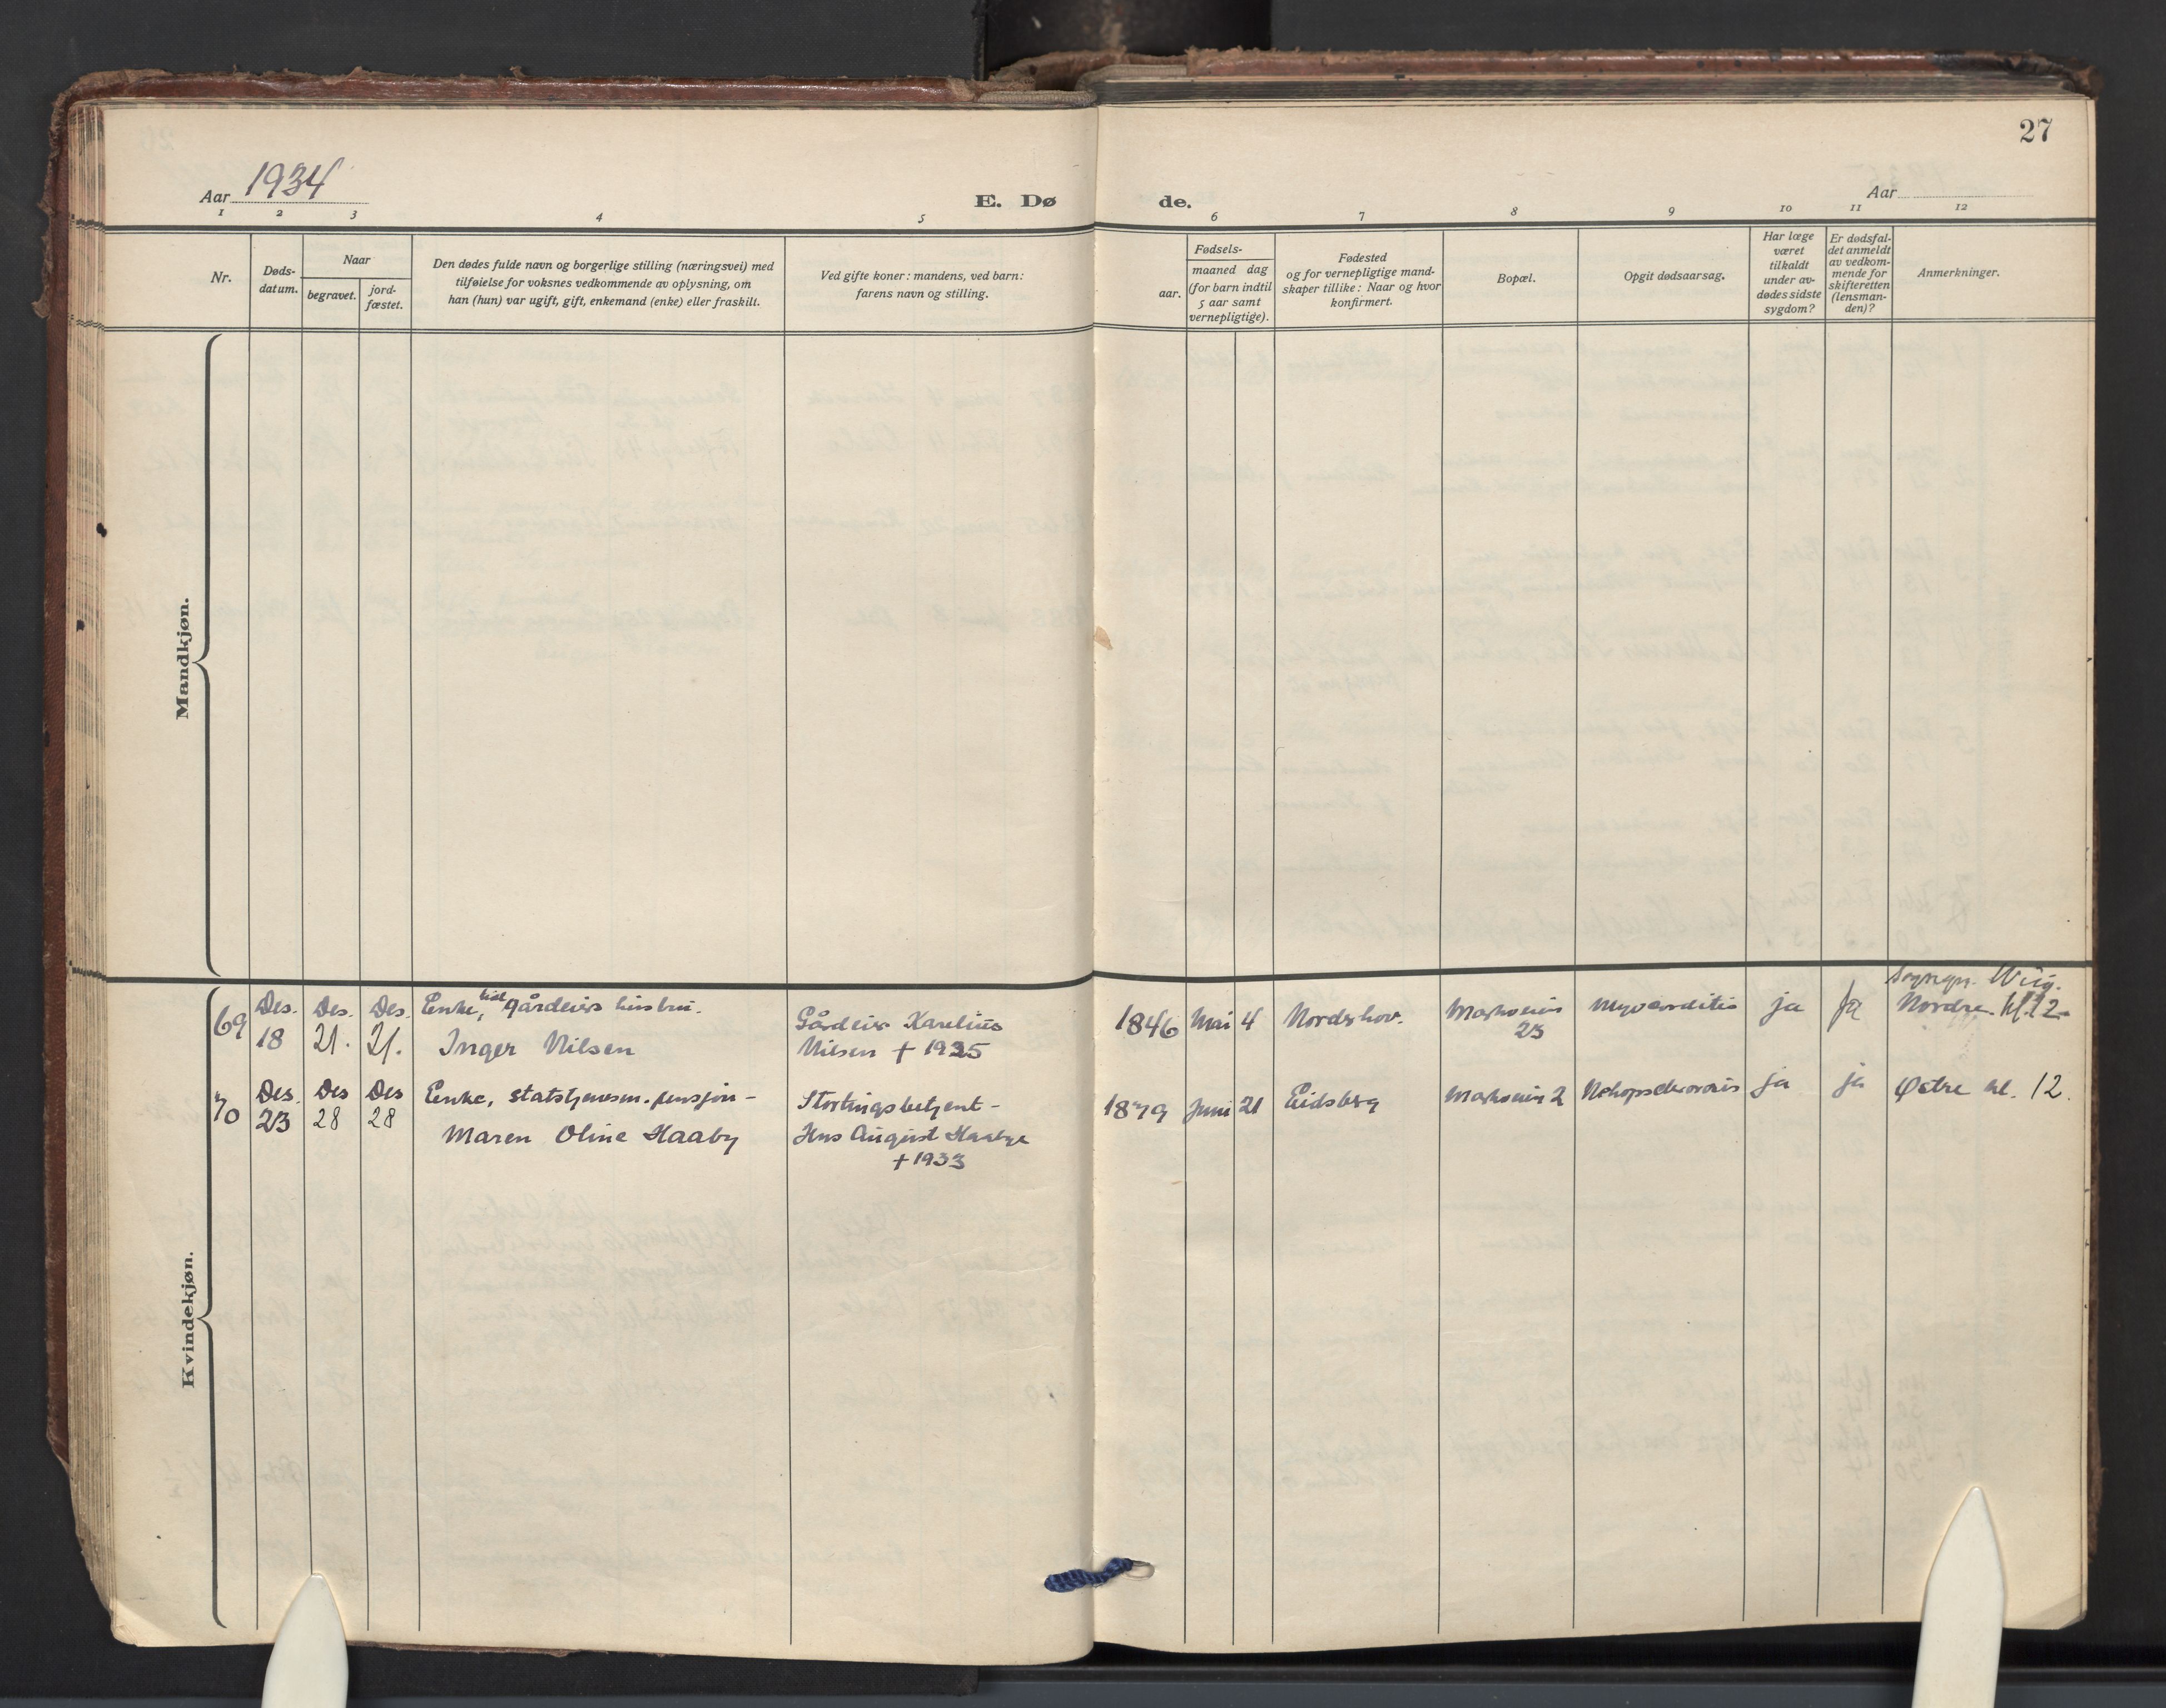 27
Aar 1934
E. Dø
de.
Aar
1 2 3 4 5
6 7 8 9 10 11 12
Nr.
Døds-
datum.
Naar
begravet.
jord-
fæstet.
Den dødes fulde navn og borgerlige stilling (næringsvei) med
tilføielse for voksnes vedkommende av oplysning, om
han (hun) var ugift, gift, enkemand (enke) eller fraskilt.
Ved gifte koner: mandens, ved barn:
farens navn og stilling.
Fødsels-
aar.
maaned dag
(for barn indtil
5 aar samt
vernepligtige).
Fødested
og for vernepligtige mand-
skaper tillike: Naar og hvor
konfirmert.
Bopæl.
Opgit dødsaarsag.
Har læge
været
tilkaldt
under av-
dødes sidste
sygdom?
Er dødsfal-
det anmeldt
av vedkom-
mende for
skifteretten
(lensman-
den)?
Anmerkninger.
Mandkjøn.
Kvindekjøn.
69
Des.
18
Des.
21.
Des.
21.
Enke, gårdeiers hustru.
Inger Nilsen
Gårdeier Karelius
Nilsen + 1925
1846 Mai 4
Nordrehov.
Markveien
23
Myocarditis
ja
ja
Sognepr. Wiig.
Nordre kl. 12.
70
Des.
23
Des
28
Des
28
Enke, statstjenestem. pensjon-
Maren Oline Haaby
Stortingsbetjent-
Hns August Haabye
+ 1933
1879 Juni 21
Eidsberg
Markveien 2
ja
ja
Østre kl. 12.